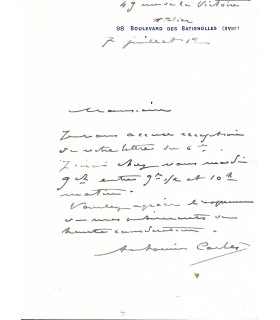 49 rue de la Victoire
98 BOULEVARD DES BATIGNOLLES (XVIIᵉ)
7 juillet 12
Monsieur
Je vous accuse reception
de votre lettre du 6 ct.
J'irai chez vous mardi
9 ct entre 9h 1/2 et 10h
matin.
Veuillez agréer l'expression
de mes sentiments de
haute considération.
Antonin Carlès